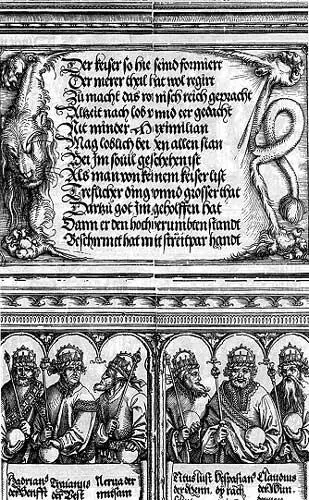 Der keiser so hie seind formiert
Der merer theil hat wol regirt
Zu macht das romisch reich gepracht
Allzeit nach lob vnnd eer gedacht
Nit minder Maximilian
Mag loblich bei Jn allen stan
Bei Jm souil geschehen ist
Als man von keinem keiser list
Treflicher ding vnnd grosser that
Dartzu got Jm geholffen hat
Dann er den hochuerumbten standt
Beschirmet hat mit streitpar handt
Hadrian9
der Senfft
Traianus
der Best
Nerua der
mitsam
Titus lust
Vespasian9
Claudius